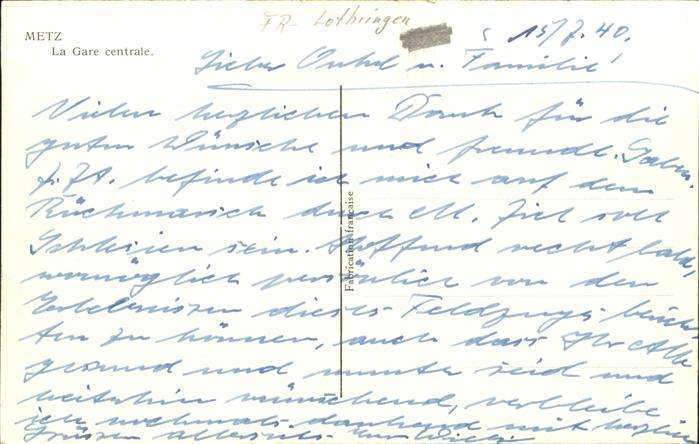 FR- Lothringen
METZ
La Gare centrale.
15/7.40.
Lieber Onkel u. Familie!
Vielen herzlichen Dank für die
guten Wünsche und freundl. Gaben
z. Zt. befinde ich mich auf dem
Rückmarsch durch M. Ziel soll
Schlesien sein. Hoffend recht bald,
womöglich persönlich von den
Erlebnissen dieses Feldzugs berich-
ten zu können, auch dass Ihr Alle
gesund und munter seid und
weiterhin wünschend, verbleibe
ich nochmals dankend mit herzlen
Grüssen allerseits Euer
Fabrication française